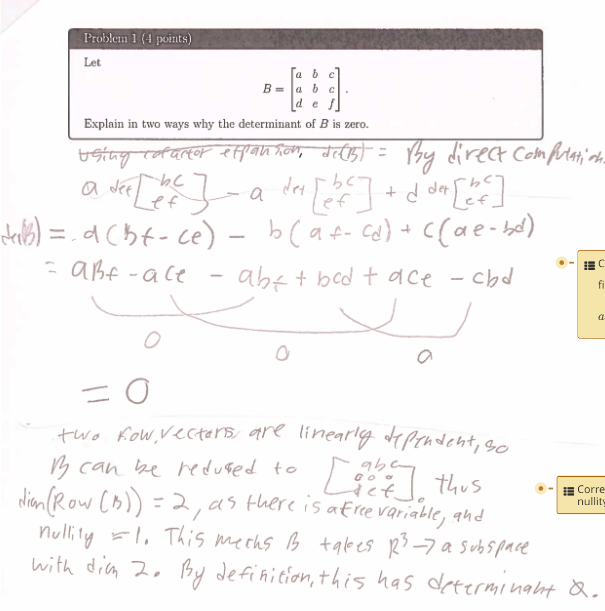 Problem 1 (4 points)
Let
B = [a b c
a b c
d e f].
Explain in two ways why the determinant of B is zero.
using cofactor expansion, det(B) = By direct computation
a det [b c
e f] - a det [b c
e f] + d det [b c
e f]
det(B) = a(bf - ce) - b(af - cd) + c(ae - bd)
= abf - ace - abf + bcd + ace - cbd
0 0 0
= 0
two row vectors are linearly dependent, so
B can be reduced to [a b c
0 0 0
d e f], thus
dim(Row(B)) = 2, as there is a free variable, and
nullity = 1. This means B takes R³ → a subspace
with dim 2. By definition, this has determinant 0.
C
fi
a
Corre
nullity